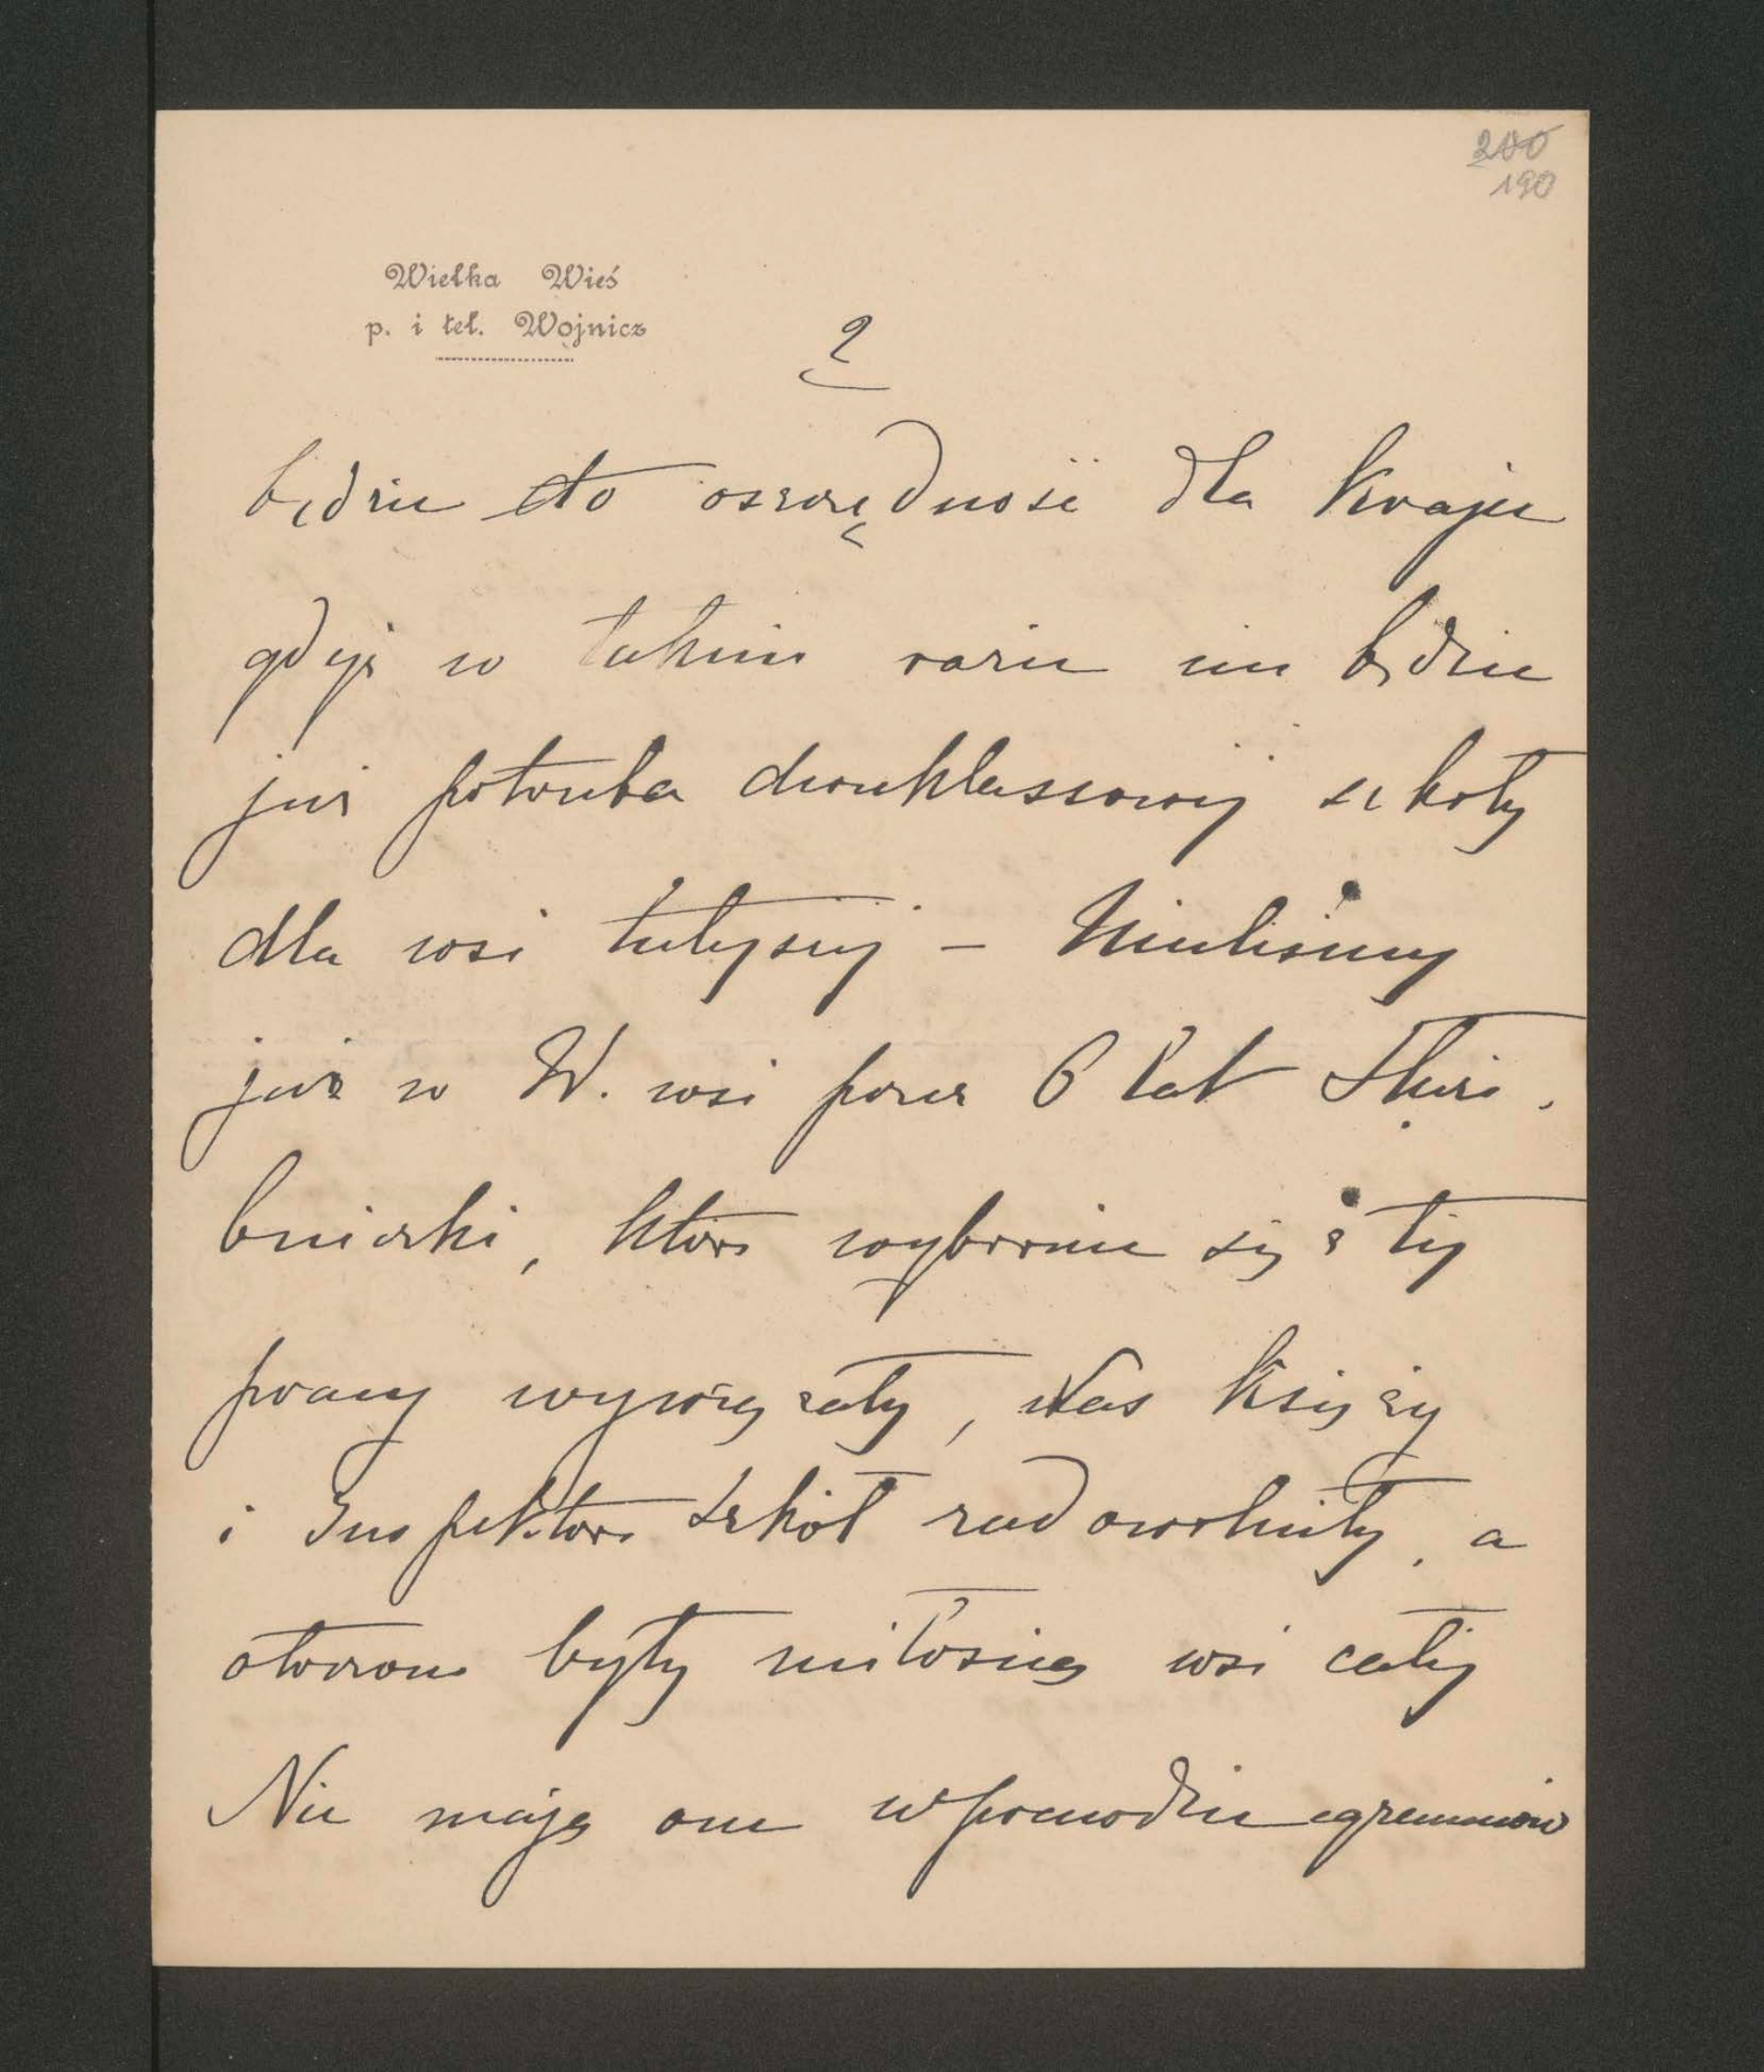 200
190
Wielka Wieś
p. i tel. Wojnicz
2
będzie to oszczędność dla Kraju
gdyż w takim razie nie będzie
już potrzeba dwuklassowej szkoły
dla wsi tutejszej – Mieliśmy
już w W. wsi przez 6 lat Służe.
bniczki, które wybornie się z tej
pracy wywięzały, Nas Księży
i Inspektora Szkół zadowolniły, a
otoczone były miłością wsi całej
Nie mają one wprawdzie egzaminów